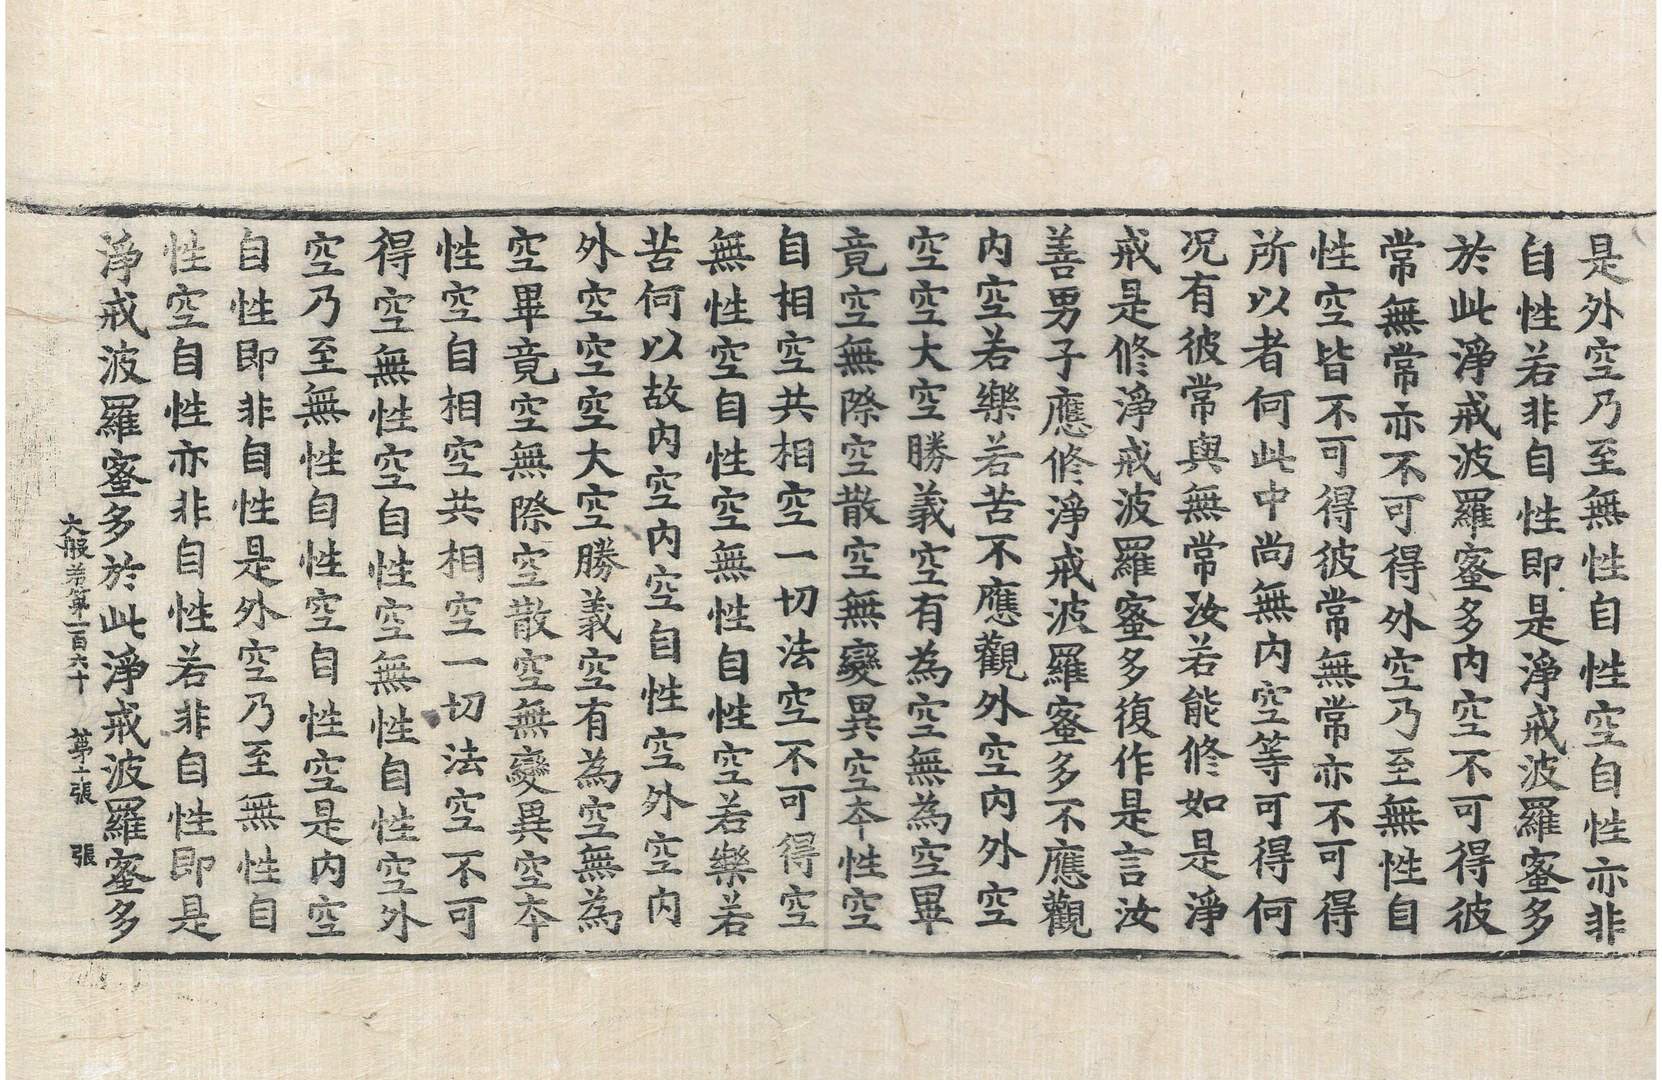 是外空乃至無性自性空自性亦非
自性若非自性即是淨戒波羅蜜多
於此淨戒波羅蜜多内空不可得彼
常無常亦不可得外空乃至無性自
性空皆不可得彼常無常亦不可得
所以者何此中尚無内空等可得何
况有彼常與無常汝若能修如是淨
戒是修淨戒波羅蜜多復作是言汝
善男子應修淨戒波羅蜜多不應觀
内空若樂若苦不應觀外空内外空
空空大空勝義空有為空無為空畢
竟空無際空散空無變異空夲性空
自相空共相空一切法空不可得空
無性空自性空無性自性空若樂若
苦何以故内空内空自性空外空内
外空空空大空勝義空有為空無為
空畢竟空無際空散空無變異空夲
性空自相空共相空一切法空不可
得空無性空自性空無性自性空外
空乃至無性自性空自性空是内空
自性即非自性是外空乃至無性自
性空自性亦非自性若非自性即是
淨戒波羅蜜多於此淨戒波羅蜜多
大般若第一百六十 第二張 張